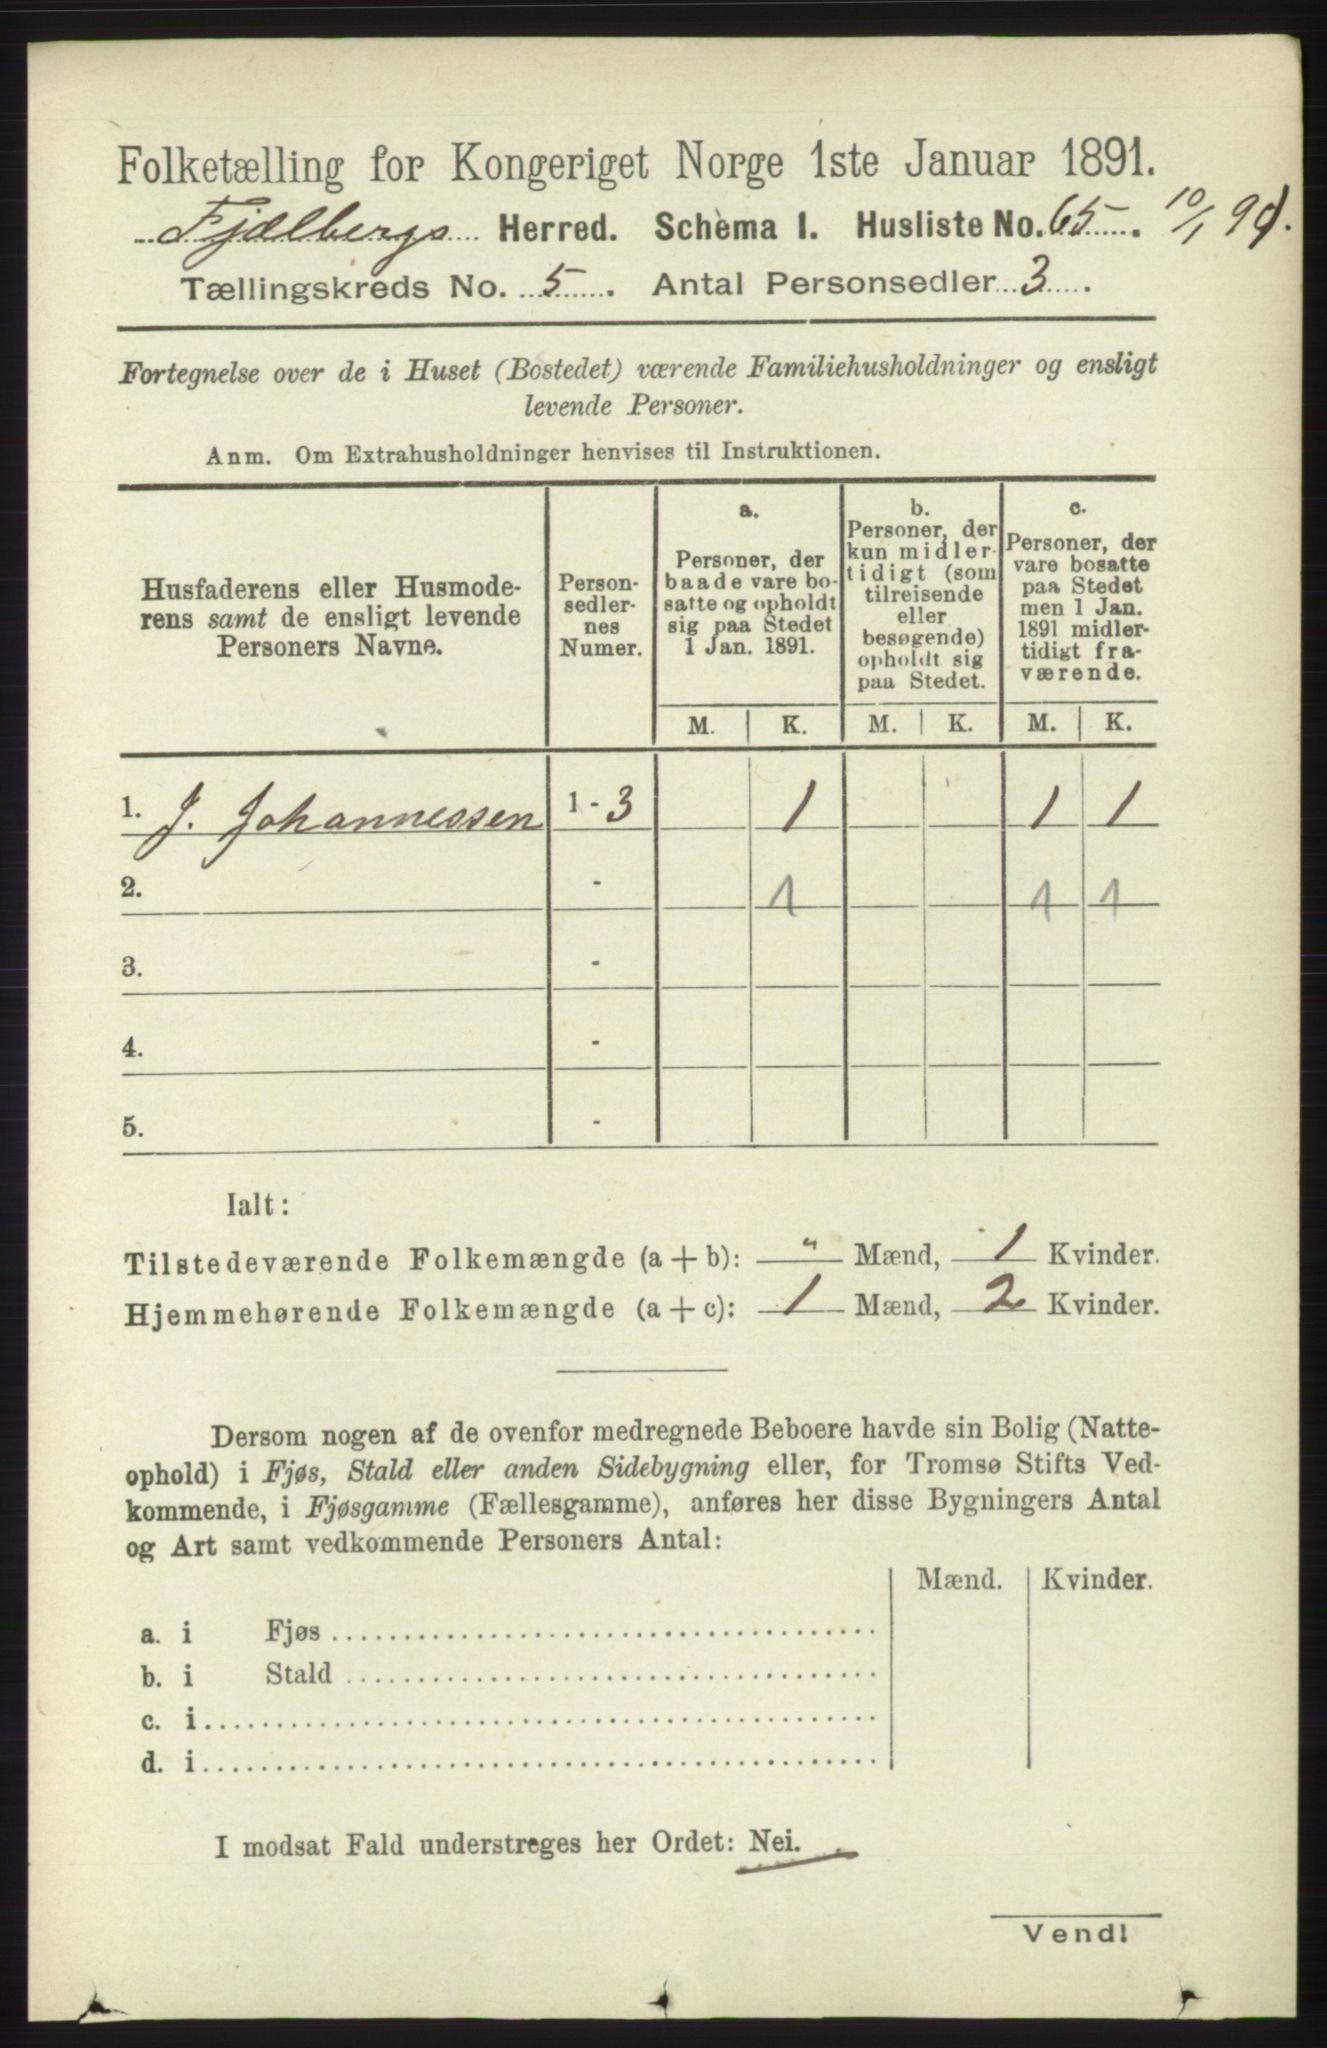 Folketælling for Kongeriget Norge 1ste Januar 1891.
Fjælbergs Herred. Schema I. Husliste No. 65. 10/1 91.
Tællingskreds No. 5. Antal Personsedler 3.
Fortegnelse over de i Huset (Bostedet) værende Familiehusholdninger og ensligt
levende Personer.
Anm. Om Extrahusholdninger henvises til Instruktionen.
Husfaderens eller Husmode-
rens samt de ensligt levende
Personers Navne.
Person-
sedler-
nes
Numer.
a.
Personer, der
baade vare bo-
satte og opholdt
sig paa Stedet
1 Jan. 1891.
b.
Personer, der
kun midler-
tidigt (som
tilreisende
eller
besøgende)
opholdt sig
paa Stedet.
c.
Personer, der
vare bosatte
paa Stedet
men 1 Jan.
1891 midler-
tidigt fra-
værende.
M. K. M. K. M. K.
1. J. Johannessen 1 - 3 1 1 1
2. - 1 1 1
3. -
4. -
5. -
Ialt:
Tilstedeværende Folkemængde (a + b): " Mænd, 1 Kvinder.
Hjemmehørende Folkemængde (a + c): 1 Mænd, 2 Kvinder.
Dersom nogen af de ovenfor medregnede Beboere havde sin Bolig (Natte-
ophold) i Fjøs, Stald eller anden Sidebygning eller, for Tromsø Stifts Ved-
kommende, i Fjøsgamme (Fællesgamme), anføres her disse Bygningers Antal
og Art samt vedkommende Personers Antal:
Mænd. Kvinder.
a. i Fjøs
b. i Stald
c. i
d. i
I modsat Fald understreges her Ordet: Nei.
Vend!